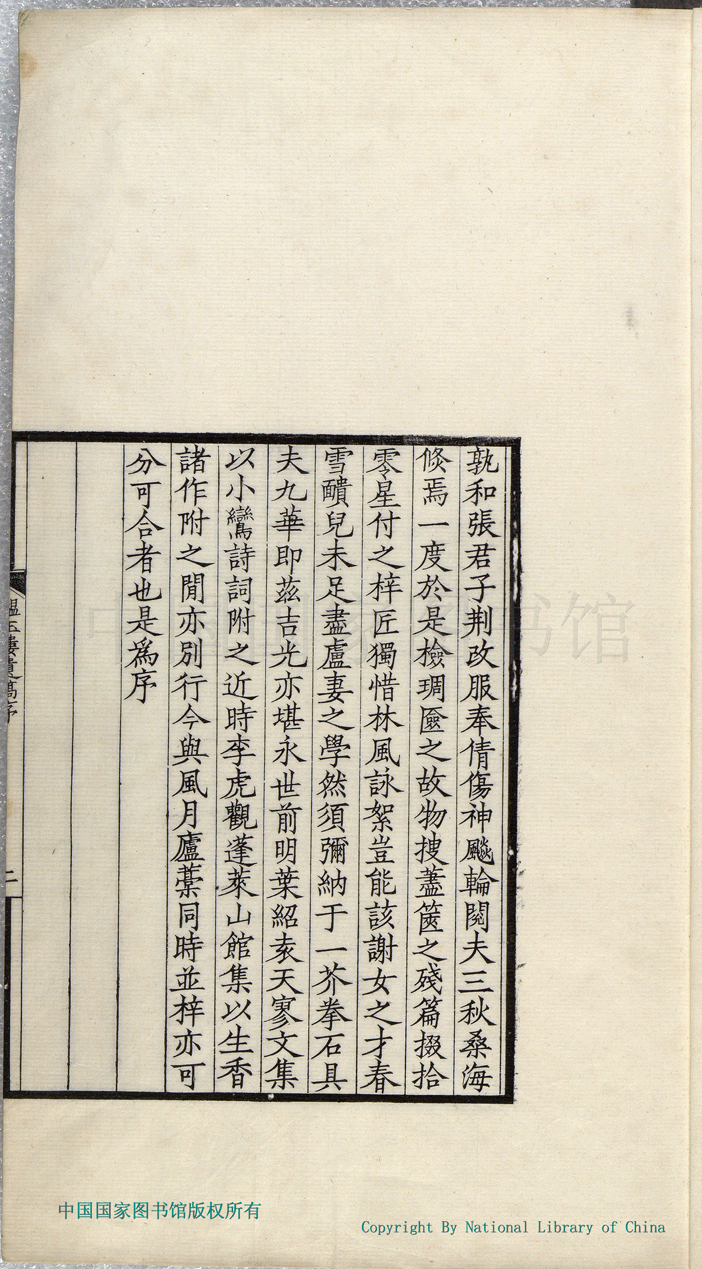 孰和張君子荆改服奉倩傷神颷輪閱夫三秋桑海
倐焉一度於是檢琱匳之故物搜藎篋之殘篇掇拾
零星付之梓匠獨惜林風詠絮豈能該謝女之才春
雪靧兒未足盡盧妻之學然須彌納于一芥拳石具
夫九華即茲吉光亦堪永世前明葉紹袁天寥文集
以小鸞詩詞附之近時李虎觀蓬萊山館集以生香
諸作附之閒亦別行今與風月廬藁同時並梓亦可
分可合者也是爲序
韞玉樓遺稿序
二
中国国家图书馆
中国国家图书馆版权所有
Copyright By National Library of China